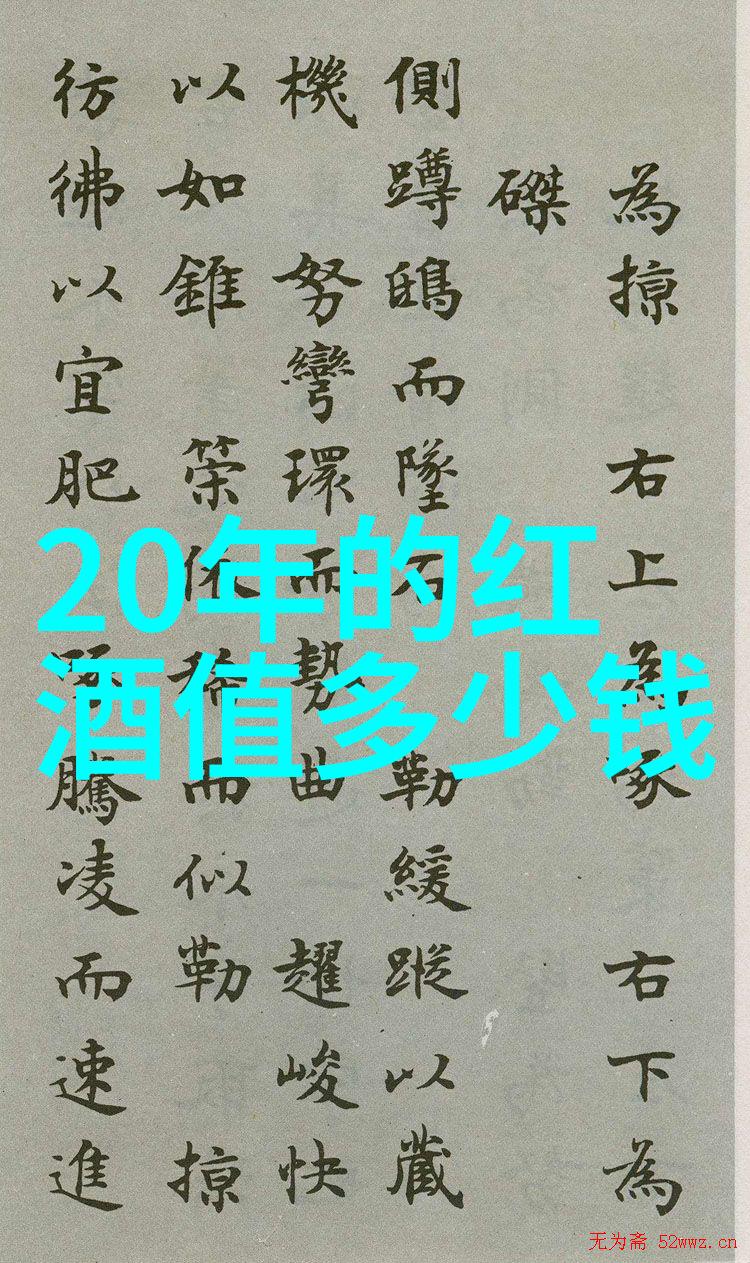 為掠 右上為啄 右下為
磔
側蹲鴟而墜石 勒緩蹤以藏
機 努彎環而勢曲 趯峻快
以如錐 策依稀而似勒 掠
彷彿以宜肥 啄騰凌而速進
20年的红
酒值多少钱
无为斋 52wwz.cn